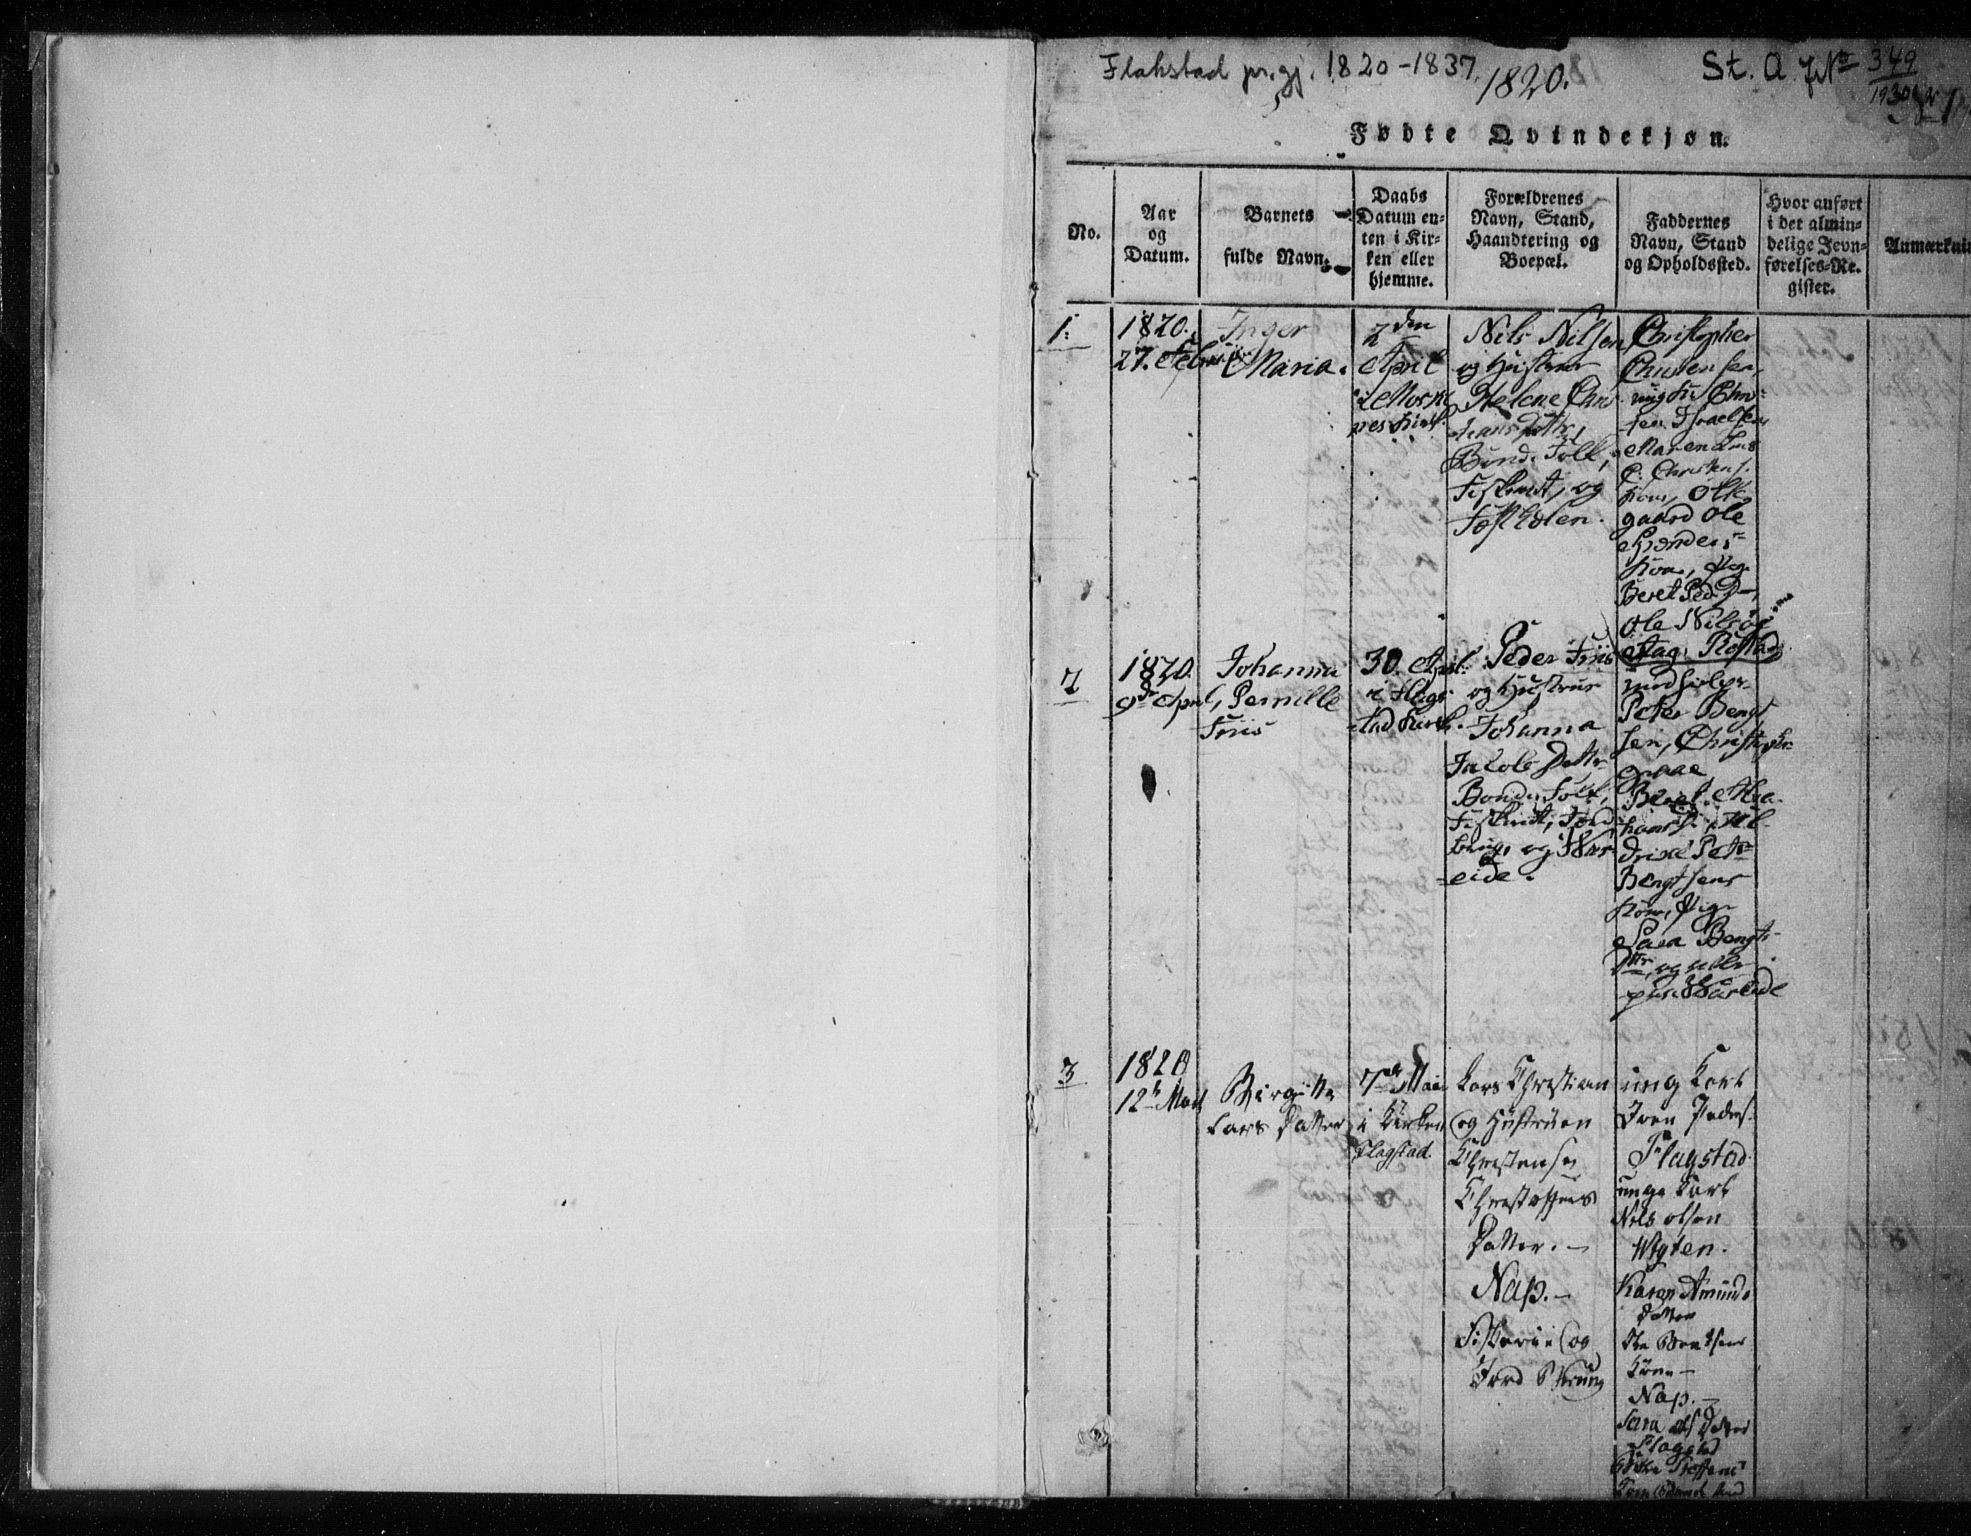 Flakstad pr.gj. 1820-1837. 1820. St. A. J№ 349
1930
№ 1
Fødte Qvindekjøn.
No.
Aar
og
Datum.
Barnets
fulde Navn.
Daabs
Datum en-
ten i Kir-
ken eller
hjemme.
Forældrenes
Navn, Stand,
Haandtering og
Boepæl.
Faddernes
Navn, Stand
og Opholdssted.
Hvor anført
i det almin-
delige Jevn-
førelses-Re-
gister.
Anmærknin
1.
1820.
27. Februar
Inger
Maria.
2den
April
i Moske
nes Kirk.
Nils Nilsen
og Hustrue
Helene Chri
stians Dattr,
Bonde Folk,
Fiskerie, og
Christopher
Christensen,
ung K. Chri-
sten Israelsen
Maren
C: Christens.
Kone,
gaard Ole
Kone, Pige
Beret Ped. D.
Ole Nils
2
1820.
9de April,
Johanna
Pernille
Friis
30. April
i Flags-
tad Kirk.
Peder Friis
og Hustrue
Johanna
Jacobs Dattr
Bonde Folk,
Fiskerie, Jord
brug, og
eide.
Peter Bengt
sen, Christopher
Graae
Beret
Bengtsens
Kone, Pige
Sara Bengts
Dttr, og
3
1820
12te Marti
Birgitte
Lars Datter
7de Mai
i Kirken
Flagstad.
Lars Christian
og Hustruen
Christense
Christophers
Datter. -
Nap. -
Fiskerie og
Jord Brug
ung Karl
Iver Peders.
Flagstad
unge Karl
Nils Olsen
Vigten.
Karen Amunds
Datter
Ole Bentsens
Kone -
Nap. -
Sara Ols Datter
Flagstad